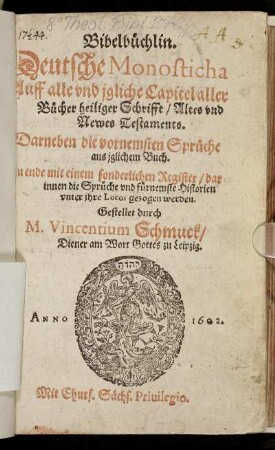 8° Theol. Bibl.
1744.
Bibelbüchlin.
Deutsche Monosticha
Auff alle vnd jgliche Capitel aller
Bücher heiliger Schrifft / Altes vnd
Newes Testaments.
Darneben die vornemsten Sprüche
aus jglichem Buch.
ende mit einem sonderlichen Register / dar
innen die Sprüche vnd fürnemste Historien
vnter jhre Locos gezogen werden.
Gestellet durch
M. Vincentium Schmuck /
Diener am Wort Gottes zu Leipzig.
יהוה
ANNO 1602.
Mit Churf. Sächs. Privilegio.